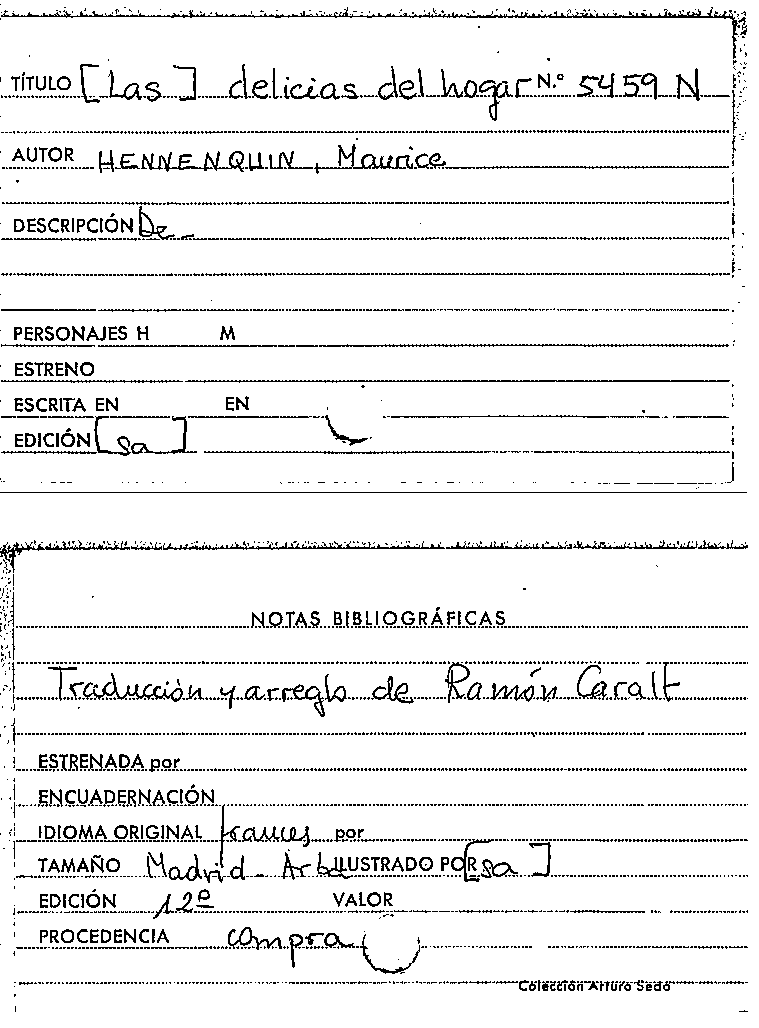 TÍTULO [Las] delicias del hogar N.º 5459 N
AUTOR HENNENQUIN, Maurice
DESCRIPCIÓN De
PERSONAJES H M
ESTRENO
ESCRITA EN EN
EDICIÓN [sa]
NOTAS BIBLIOGRÁFICAS
Traducción y arreglo de Ramón Caralt
ESTRENADA por
ENCUADERNACIÓN
IDIOMA ORIGINAL frances por
TAMAÑO Madrid - Arba ILUSTRADO POR [sa]
EDICIÓN 12º VALOR
PROCEDENCIA compra
Colección Arturo Sedó